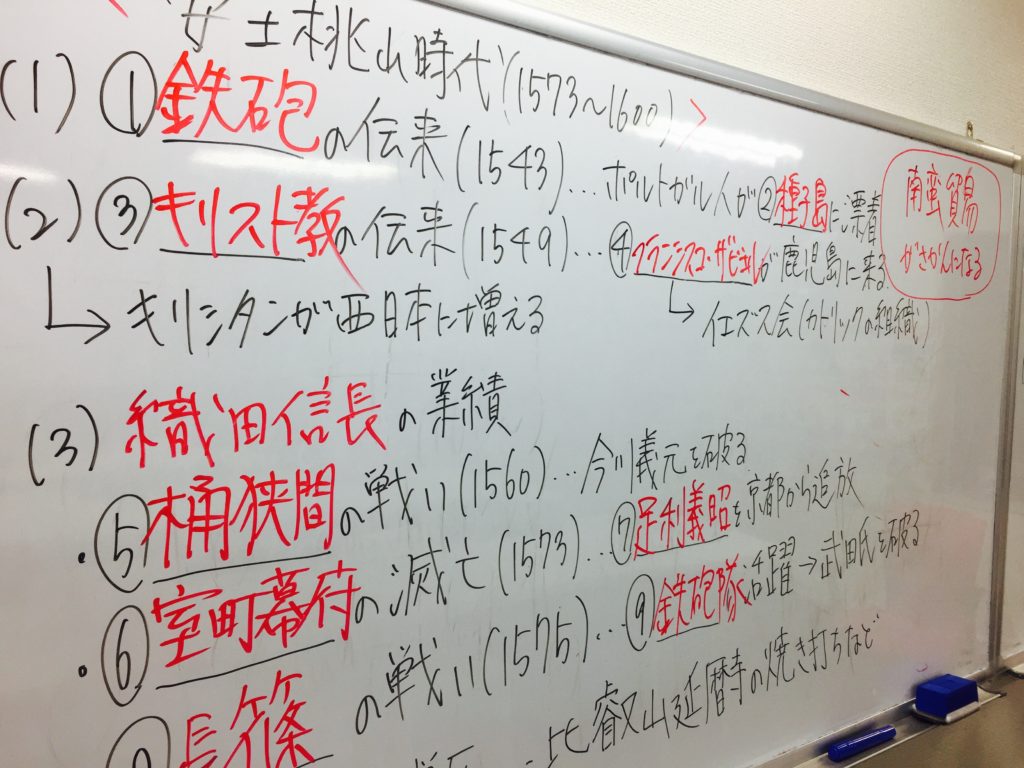 安土桃山時代(1573〜1600)>
(1) ①鉄砲の伝来(1543)…ポルトガル人が②種子島に漂着
(2) ③キリスト教の伝来(1549)…④フランシスコ・ザビエルが鹿児島に来る
→キリシタンが西日本に増える
→イエズス会(カトリックの組織)
南蛮貿易
がさかんになる
(3) 織田信長の業績
・⑤桶狭間の戦い(1560)…今川義元を破る
・⑥室町幕府の滅亡(1573)…⑦足利義昭を京都から追放
長篠の戦い(1575)…⑨鉄砲隊活躍→武田氏を破る
比叡山延暦寺の焼き打ちなど